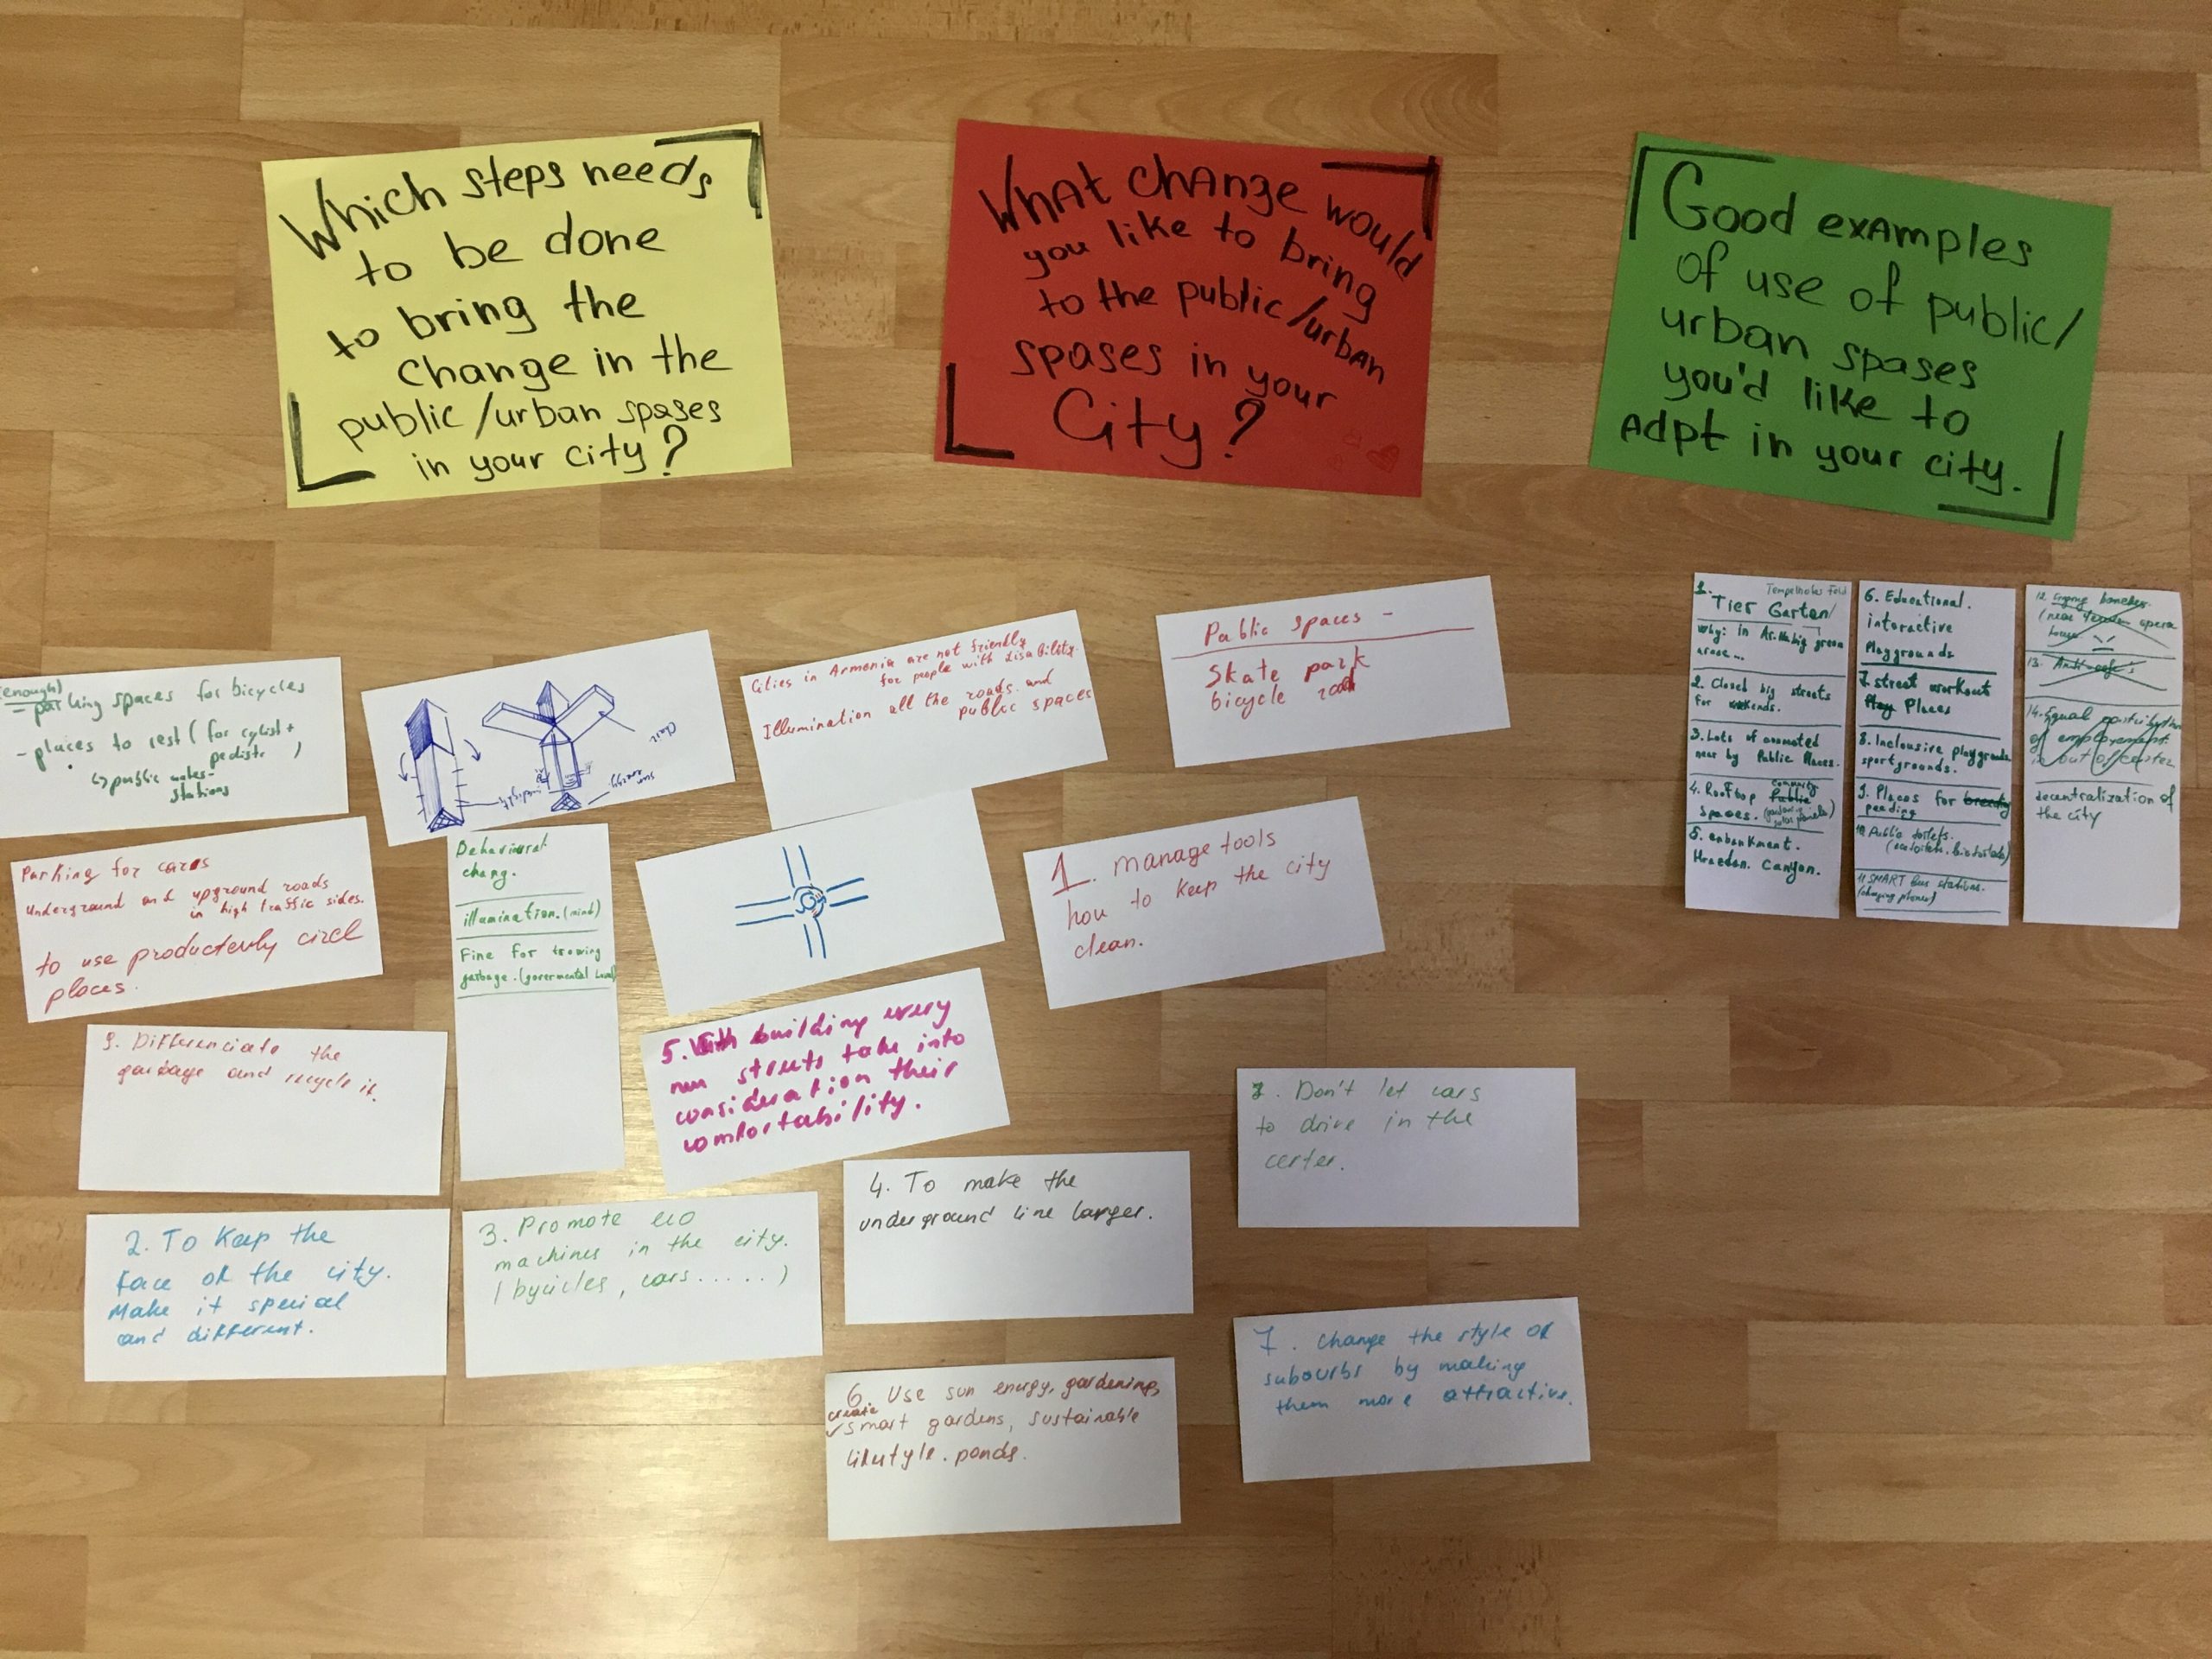 Which steps needs
to be done
to bring the
change in the
public/urban spases
in your city?
What change would
you like to bring
to the public/urban
spases in your
City?
Good examples
of use of public/
urban spases
you'd like to
Adpt in your city.
(enough)
- parking spaces for bicycles
- places to rest (for cyclist +
pedistr )
↳ public
stations
Parking for cares
Underground and upground roads
in high traffic sides.
to use productevly circl
places.
Behavioural
chang.
illumination. (mind)
Fine for trowing
garbage. (govermental Level)
Cities in Armenia are not friendly
for people with disability.
Illumination all the roads and
public spaces
Public spaces -
Skate park
bicycle road
1. manage tools
how to keep the city
clean.
5. With building every
new streets take into
consideration their
comfortability.
9. Differenciate the
garbage and recycle it.
2. To Keep the
face of the city.
Make it special
and different.
3. Promote eco
machines in the city.
(bycicles, cars.....)
4. To make the
underground line larger.
6. Use sun energy, gardening,
create
smart gardens, sustainable
lifestyle. ponds.
Don't let cars
to drive in the
center.
7. Change the style of
subourbs by making
them more attractive.
1. Tempelhofes Feld
Tier Garten/
why: in big green
2. Closed big streets
for wekends.
3. Lots of
near by Public Places.
4. Rooftop Public community
Spaces.
5. enbankment.
Hrazdan. Canyon.
6. Educational.
interactive
Playgrounds
7. street workout
Play Places
8. Inclousive playgrounds
sportgrounds.
9. Places for
10 Public toilets.
11 SMART Bus stations.
(charging phones)
12. benches.
(near opera
house
13. Anti-cafe's
14. Equal
of employement
in out of center
decentralization of
the city